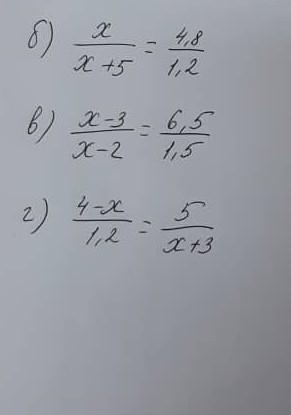 б) x/(x+5) = 4,8/1,2
в) (x-3)/(x-2) = 6,5/1,5
г) (4-x)/1,2 = 5/(x+3)